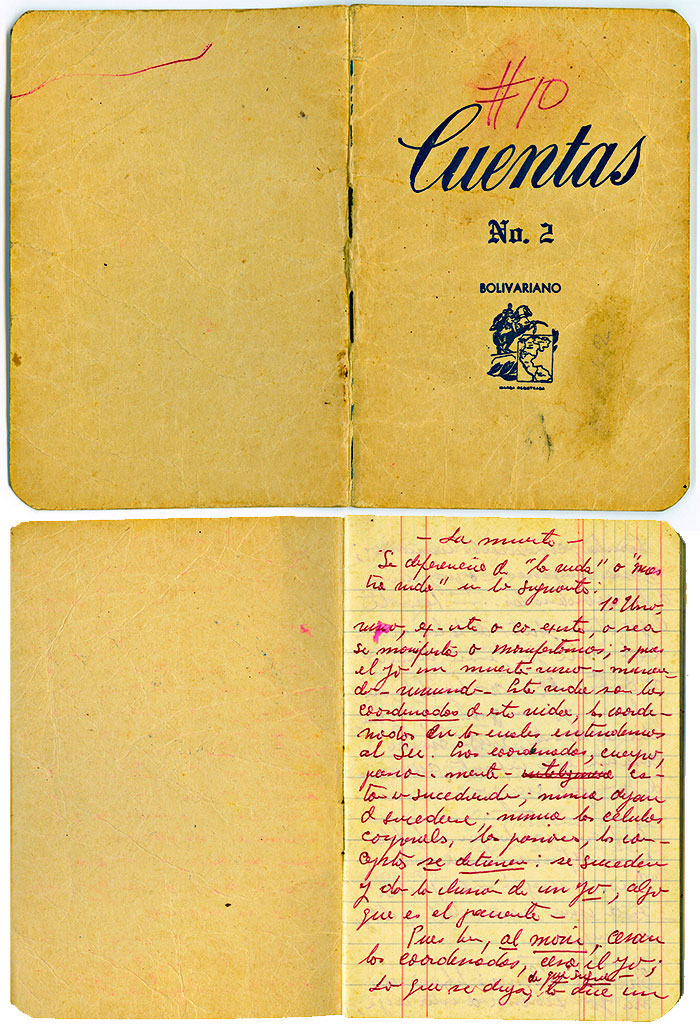 #10
Cuentas
No. 2
BOLIVARIANO
MARCA REGISTRADA
— La muerte —
Se diferencia de "la vida" o "nues
tra vida" en lo siguiente:
1º Uno,
uno, ex-iste o co-existe, o sea
se manifiesta o manifestamos; es pues
el yo un muerto-vivo-
do- Esta vida son las
coordenadas de esta vida, las coorde-
nadas en las cuales entendemos
al Ser. Esas coordenadas, cuerpo,
pasión- mente- inteligencia es-
tán sucediendo; nunca dejan
de sucederse; nunca las células
corporales, las pasiones, los con-
ceptos se detienen: se suceden
y da la ilusión de un yo, algo
que es el paciente—
Pues bien, al morir, cesan
las coordenadas, cesa el yo;
de que sigue
Lo que se diga, lo dice un